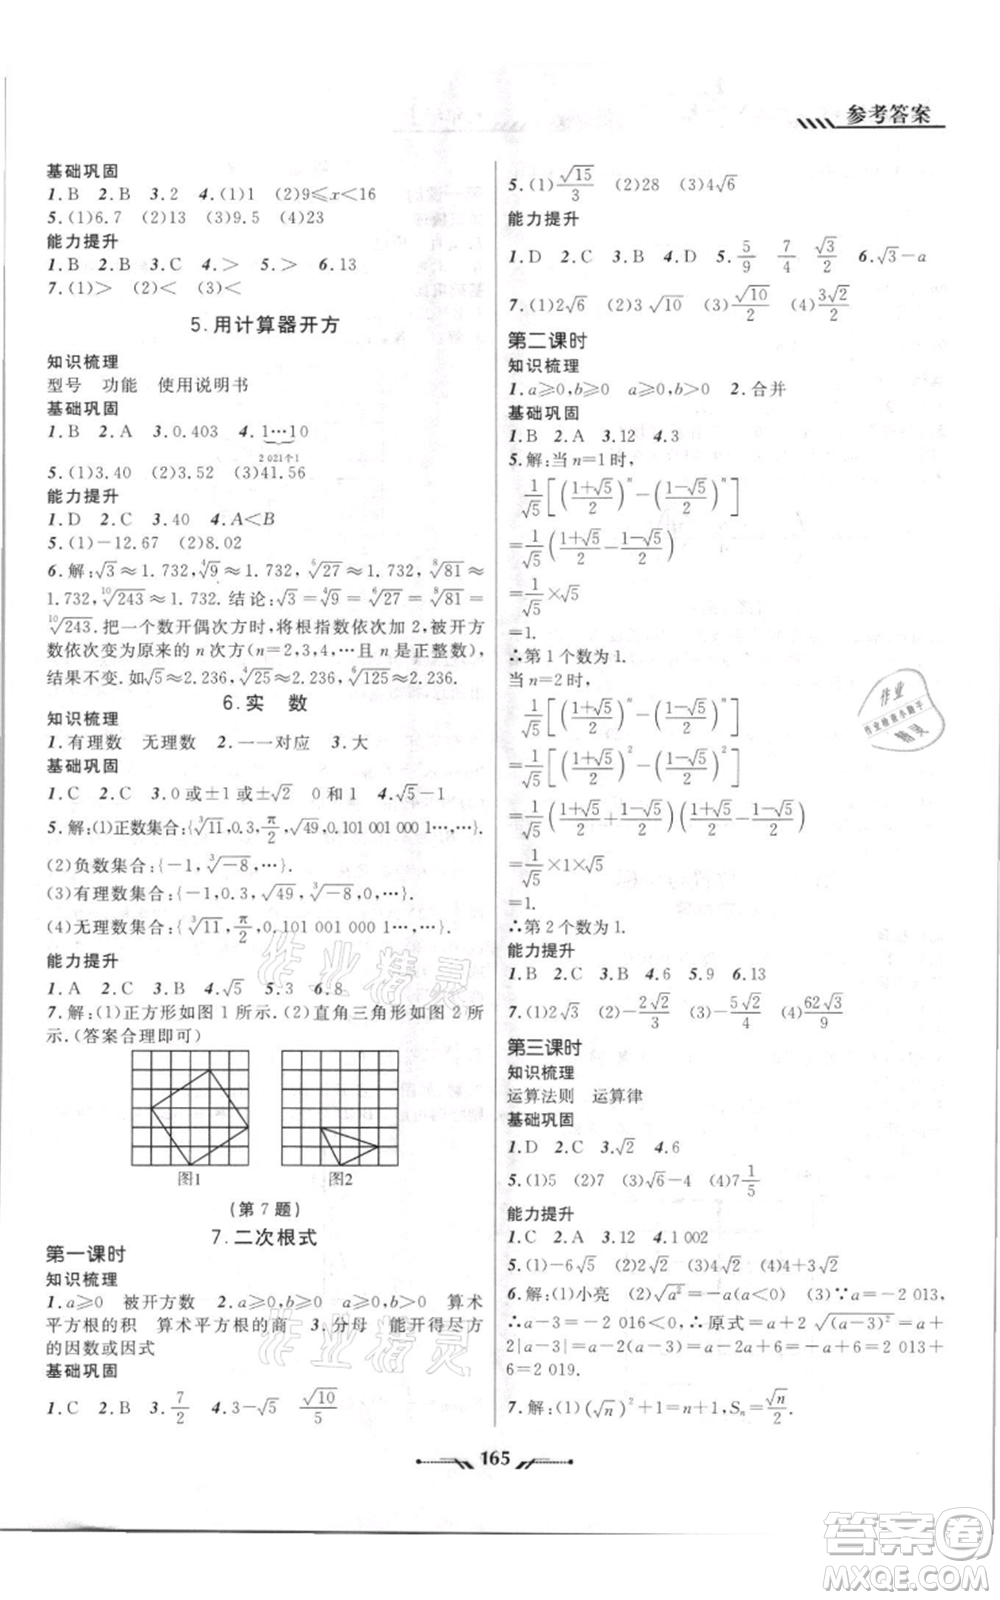 参考答案
基础巩固
1.B 2.B 3.2 4.(1)1 (2)9≤x<16
5.(1)6.7 (2)15.9 (3)9.5 (4)23
能力提升
1.B 2.B 3.C 4.> 5.> 6.13
7.(1)> (2)< (3)<
5.用计算器开方
知识梳理
型号 功能 使用说明书
基础巩固
1.B 2.A 3.0.403 4.1…10
2 021个1
5.(1)3.40 (2)2.26 (3)41.56
能力提升
1.D 2.C 3.40 4.A<B
5.(1)-12.67 (2)8.02
6.解:√3≈1.732,⁴√9≈1.732,⁶√27≈1.732,⁸√81≈
1.732,¹⁰√243≈1.732.结论:√3=⁴√9=⁶√27=⁸√81=
¹⁰√243.把一个数开偶次方时,将根指数依次加 2,被开方
数依次变为原来的 n 次方(n=2,3,4,…且 n 是正整数),
结果不变.如√5≈2.236,⁴√25≈2.236,⁶√125≈2.236.
6.实 数
知识梳理
1.有理数 无理数 2.一一对应 3.大
基础巩固
1.C 2.C 3.0 或±1 或±√2 0 和 1 4.√5-1
5.解:(1)正数集合:{³√11,0.3,π/2,√49,0.101 001 000 1…,…}.
(2)负数集合:{-1,³√-8,…}.
(3)有理数集合:{-1,0.3,√49,³√-8,0,…}.
(4)无理数集合:{³√11,π/2,0.101 001 000 1…,…}.
能力提升
1.A 2.C 3.B 4.√5 5.3 6.8
7.解:(1)正方形如图 1 所示.(2)直角三角形如图 2 所
示.(答案合理即可)
图1 图2
(第 7 题)
7.二次根式
第一课时
知识梳理
1.a≥0 被开方数 2.a≥0,b≥0 a≥0,b>0 算术
平方根的积 算术平方根的商 3.分母 能开得尽方
的因数或因式
基础巩固
1.C 2.B 3.7/2 4.3-√5 √10/5
5.(1)√15/3 (2)28 (3)4√6
能力提升
1.D 2.C 3.B 4.D 5.5/9 7/4 √3/2 6.√3-a
7.(1)2√6 (2)10√6 (3)√10/2 (4)3√2/2
第二课时
知识梳理
1.a≥0,b≥0 a≥0,b>0 2.合并
基础巩固
1.B 2.A 3.12 4.3
5.解:当 n=1 时,
1/√5[((1+√5)/2)ⁿ-((1-√5)/2)ⁿ]
=1/√5((1+√5)/2-(1-√5)/2)
=1/√5×√5
=1.
∴第 1 个数为 1.
当 n=2 时,
1/√5[((1+√5)/2)ⁿ-((1-√5)/2)ⁿ]
=1/√5[((1+√5)/2)²-((1-√5)/2)²]
=1/√5((1+√5)/2+(1-√5)/2)((1+√5)/2-(1-√5)/2)
=1/√5×1×√5
=1.
∴第 2 个数为 1.
能力提升
1.B 2.C 3.B 4.6 5.9 6.13
7.(1)2√3 (2)-2√2/3 (3)-5√2/4 (4)62√3/9
第三课时
知识梳理
运算法则 运算律
基础巩固
1.D 2.C 3.√2 4.6
5.(1)5 (2)1 (3)√6-4 (4)7 1/5
能力提升
1.C 2.A 3.12 4.1 002
5.(1)-6√5 (2)2√2 (3)2 (4)4+3√2
6.解:(1)小亮 (2)√a²=-a(a<0) (3)∵a=-2 013,
∴a-3=-2 016<0,∴原式=a+2√(a-3)²=a+
2|a-3|=a-2(a-3)=-a+6=-(-2 013)+
6=2 019.
7.解:(1)(√n)²+1=n+1,Sₙ=√n/2.
165
作业
作业检查小助手
精灵
作业精灵
作业精灵
答案卷
MXQE.COM